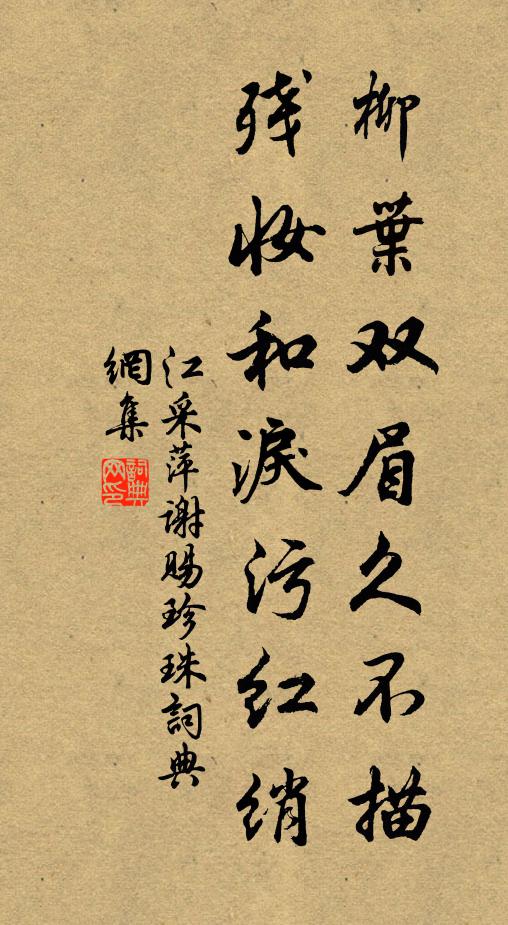 柳葉双眉久不描
残妆和淚污红绡
江采萍谢賜珍珠詞典
網集
詞典
网印